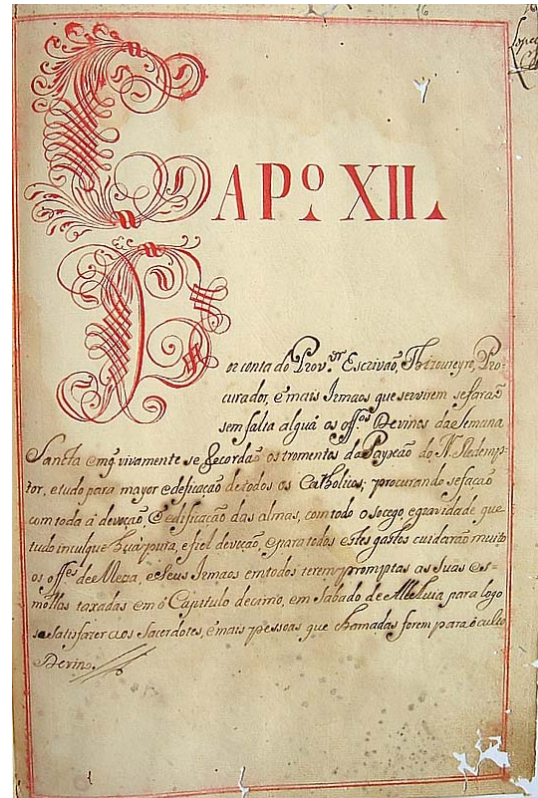 CAPº XII.
Por conta do Prov.ºr Escrivaõ, Thizoureyro, Pro-
curador, e mais Irmaos que servirem se faraõ
sem falta alguã os off.ºs Devinos da Semana
Sancta em q̃ vivamente se Recordaõ os tromentos da Payxaõ do N. Redemp-
tor, e tudo para mayor edeficaçaõ de todos os Catholicos; procurando se façaõ
com toda a devoçaõ, & edificaçaõ das almas, com todo o socego, e gravidade que
tudo inculque huã pura, e fiel devoçaõ, e para todos estes gastos cuidaraõ muito
os off.es de Meza, e seus Irmaos em todos terem promptas as suas es-
mollas taxadas em o Capitulo decimo, em Sabado de Alleluia para logo
se satisfazer aos Sacerdotes, e mais pessoas que chamadas forem para o culto
Devino.